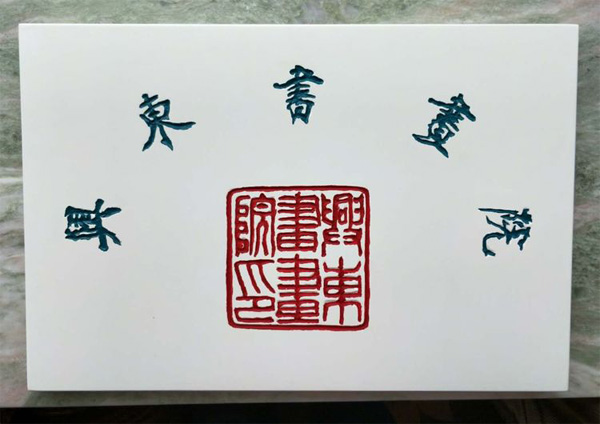 興東書畫院
興東
書畫
院印